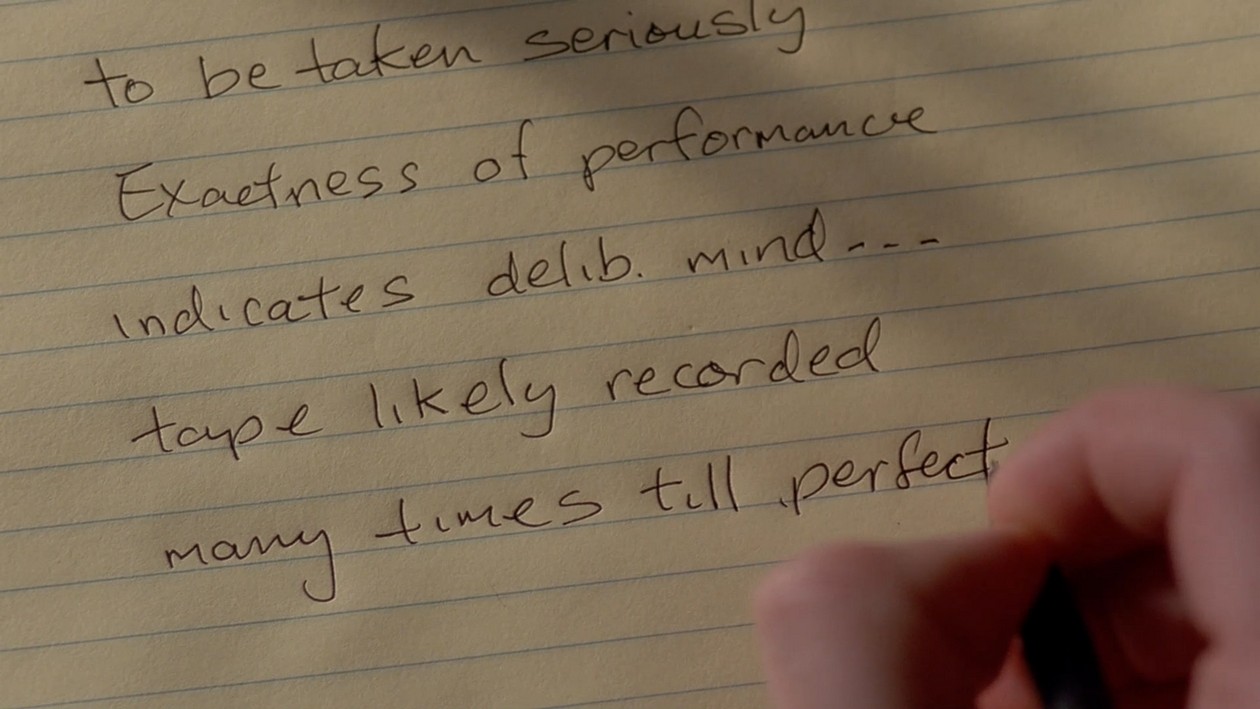 to be taken seriously
Exactness of performance
indicates delib. mind---
tape likely recorded
many times till perfect